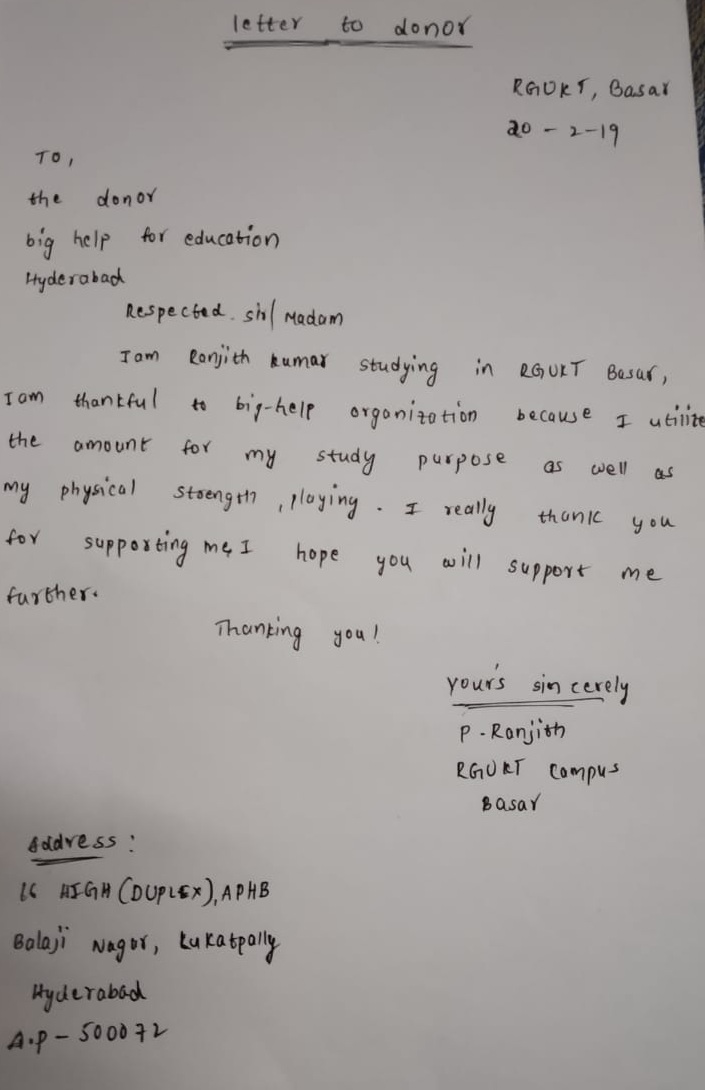 letter to donor
RGUKT, Basar
20-2-19
To,
the donor
big help for education
Hyderabad
Respected. sir/ Madam
I am Ranjith kumar studying in RGUKT Basar,
I am thankful to big-help organization because I utilize
the amount for my study purpose as well as
my physical strength, playing. I really thank you
for supporting me, I hope you will support me
further.
Thanking you!
your's sincerely
P-Ranjith
RGUKT Campus
Basar
Address:
16 HIGH (DUPLEX), APHB
Balaji Nagar, kukatpally
Hyderabad
A.p-500072